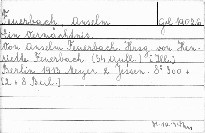 Feuerbach, Anselm Gh 1902 6
Ein Vermächtnis.
Von Anselm Feuerbach. Hrsg. von Hen-
riette Feuerbach. (34 Aufl.) [Ill.]
Berlin 1913 Meyer & Jessen. 8° 300 +
[2 + 8 Bl.]